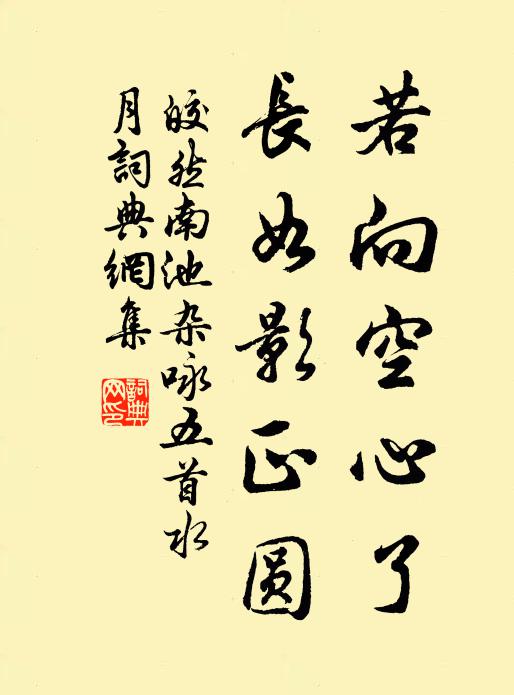 若向空心了
長如影正圓
皎然南池杂咏五首水
月詞典網集
詞典
网印